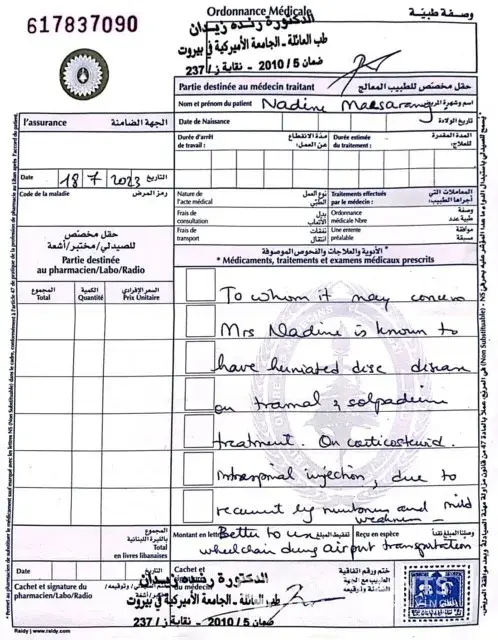 617837090
Ordonnance Médicale
وصفة طبيّة
الدكتورة رنده زيدان
طب العائلة - الجامعة الأميركية في بيروت
ضمان 2010/5 - نقابة ز/237
Partie destinée au médecin traitant
حقل مخصّص للطبيب المعالج
Nom et prénom du patient
Nadine
اسم وشهرة المريض
l'assurance
الجهة الضامنة
Date de Naissance
تاريخ الولادة
Durée d'arrêt de travail :
مدة الانقطاع عن العمل:
Durée estimée du traitement :
المدة المقدرة للعلاج:
Date
18 7 2023
التاريخ
Code de la maladie
رمز المرض
Nature de l'acte médical
نوع العمل الطبّي
Traitements effectués par le médecin :
المعاملات التي أجراها الطبيب:
حقل مخصّص
للصيدلي/مختبر/أشعة
Partie destinée
au pharmacien/Labo/Radio
Frais de consultation
بدل الأتعاب
Ordonnance médicale Nbre
وصفة طبية عدد
Frais de transport
انتقال
Une entente préalable
موافقة مسبقة
* الأدوية والعلاجات والفحوص الموصوفة *
* Médicaments, traitements et examens médicaux prescrits
المجموع
Total
الكمية
Quantité
السعر الإفرادي
Prix Unitaire
To whom it may concern
Mrs Nadine is known to
have herniated disc disease
on tramal & solpadeine
treatment. On corticosteroid.
intraspinal injection, due to
recurrent leg numbness and mild
weakness
Better to use
wheelchair during airport transportation
المجموع
بالليرة اللبنانية
Total
en livres libanaises
Montant en lettres
Reçu en espèce
وصلنا المبلغ نقداً
Date
التاريخ
Cachet et signature du
pharmacien/Labo/Radio
Cachet et
du médecin
ختم ورقم اتفاقية
الدكتورة رنده زيدان
طب العائلة - الجامعة الأميركية في بيروت
ضمان 2010/5 - نقابة ز/237
Raidy | www.raidy.com